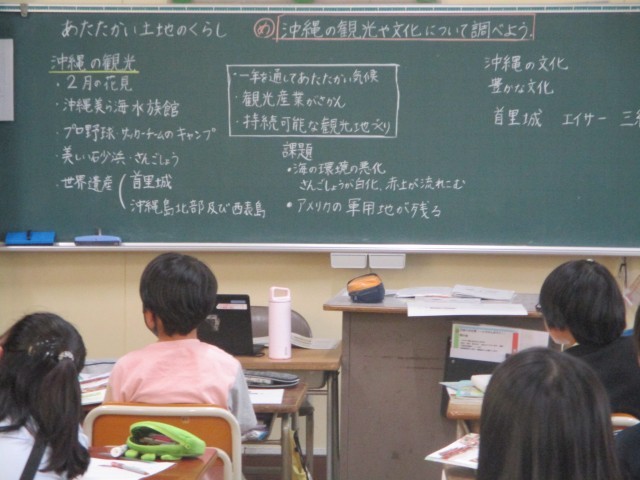 あたたかい土地のくらし
め 沖縄の観光や文化について調べよう。
沖縄の観光
・2月の花見
・沖縄美ら海水族館
・プロ野球・サッカーチームのキャンプ
・美しい砂浜・さんごしょう
・世界遺産
首里城
沖縄島北部及び西表島
・一年を通してあたたかい気候
・観光産業がさかん
・持続可能な観光地づくり
課題
・海の環境の悪化
さんごしょうが白化、赤土が流れこむ
・アメリカの軍用地が残る
沖縄の文化
豊かな文化
首里城 エイサー 三